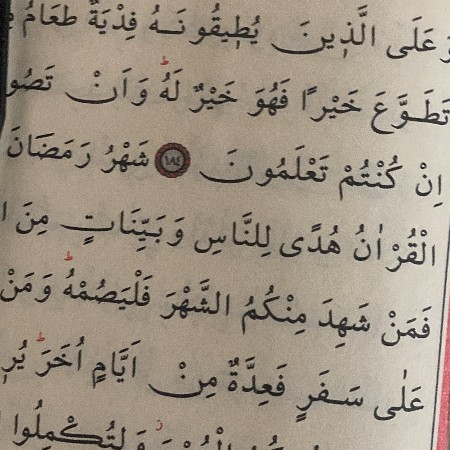 وَعَلَى الَّذ۪ينَ يُط۪يقُونَهُ فِدْيَةٌ طَعَامُ
تَطَوَّعَ خَيْرًا فَهُوَ خَيْرٌ لَهُ وَاَنْ تَصُو
اِنْ كُنْتُمْ تَعْلَمُونَ ﴿١٨٤﴾ شَهْرُ رَمَضَانَ
الْقُرْاٰنُ هُدًى لِلنَّاسِ وَبَيِّنَاتٍ مِنَ
فَمَنْ شَهِدَ مِنْكُمُ الشَّهْرَ فَلْيَصُمْهُ وَمَنْ
عَلٰى سَفَرٍ فَعِدَّةٌ مِنْ اَيَّامٍ اُخَرَ
وَلِتُكْمِلُوا